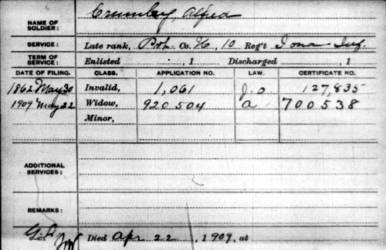 NAME OF SOLDIER: Crumley, Alfred
SERVICE: Late rank, Pvt. Co. H, 10 Reg't Iowa Inf.
TERM OF SERVICE: Enlisted , 1 Discharged , 1
DATE OF FILING. CLASS. APPLICATION NO. LAW. CERTIFICATE NO.
1862 May 30 Invalid, 1,061 127,835
1909 May 22 Widow, 920.504 a 700538
Minor,
ADDITIONAL SERVICES:
REMARKS:
Died Apr 22, 1909, at